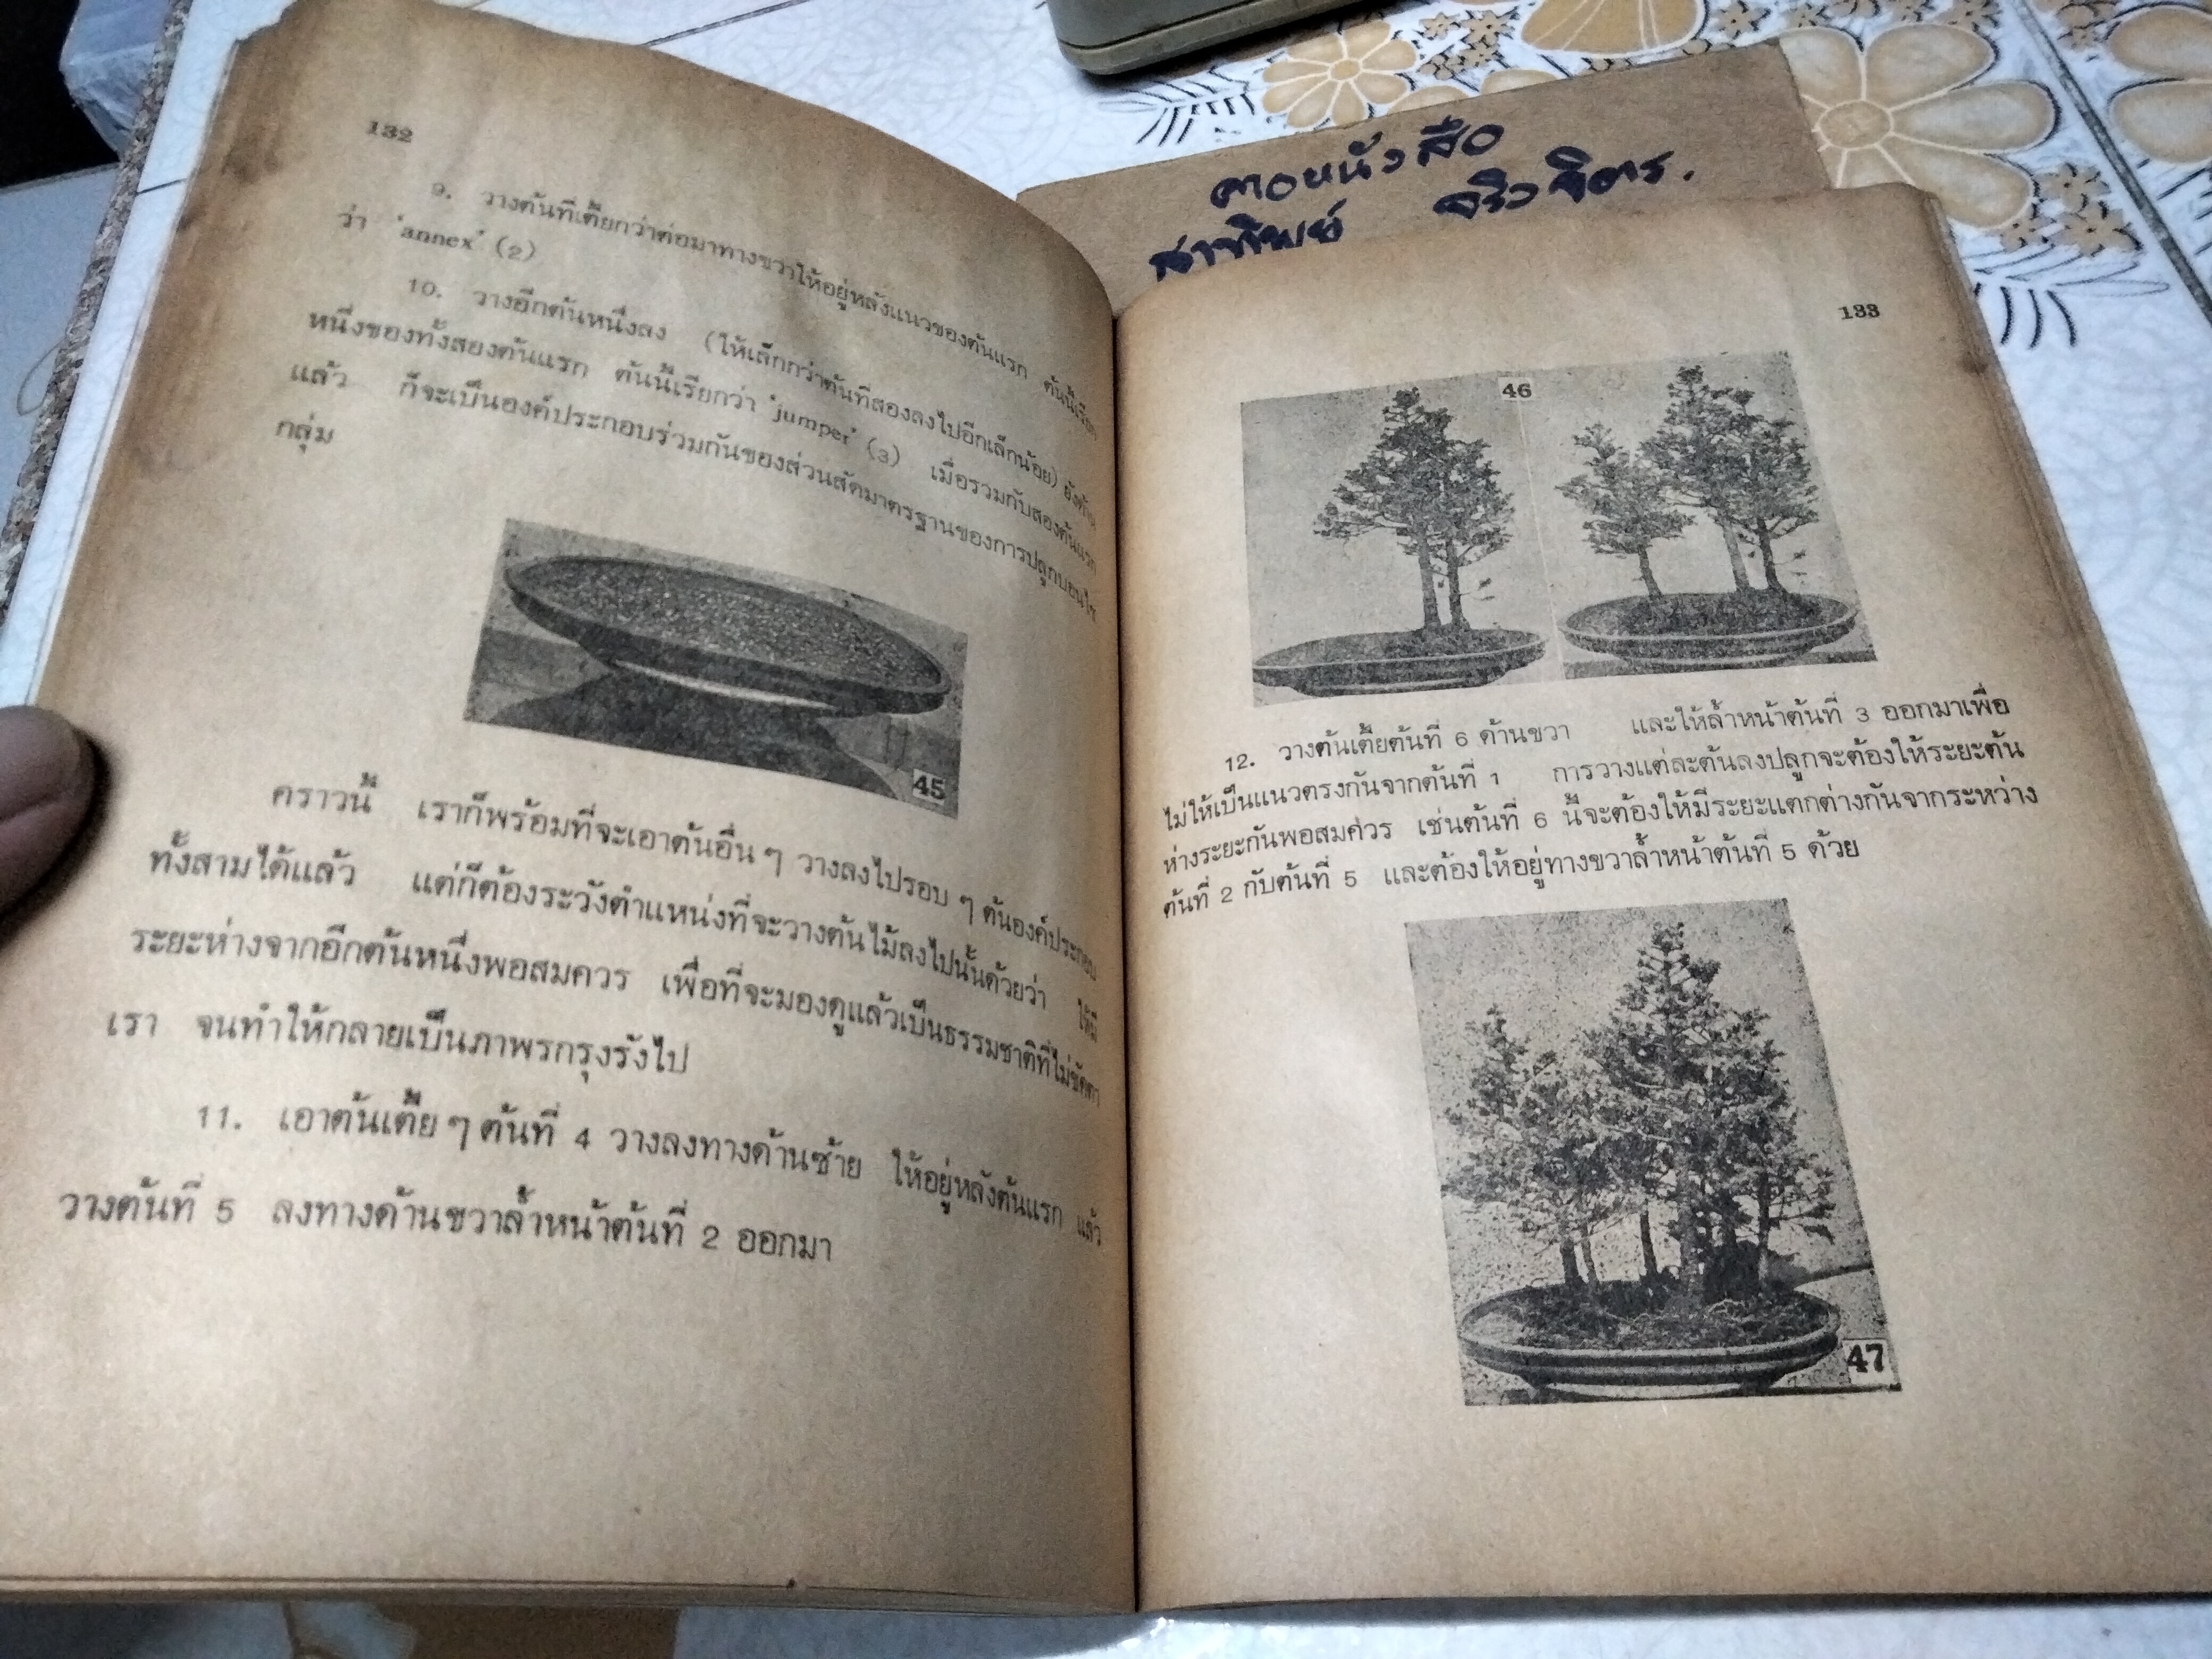 132
9. วางต้นที่เตี้ยกว่าต่อมาทางขวาให้อยู่หลังแนวของต้นแรก ต้นนี้เรียก
ว่า 'annex' (2)
10. วางอีกต้นหนึ่งลง (ให้เล็กกว่าต้นที่สองลงไปอีกเล็กน้อย) ยังด้าน
หนึ่งของทั้งสองต้นแรก ต้นนี้เรียกว่า 'jumper' (3) เมื่อรวมกับสองต้นแรก
แล้ว ก็จะเป็นองค์ประกอบร่วมกันของส่วนสัดมาตรฐานของการปลูกบอนไซ
กลุ่ม
45
คราวนี้ เราก็พร้อมที่จะเอาต้นอื่นๆ วางลงไปรอบๆ ต้นองค์ประกอบ
ทั้งสามได้แล้ว แต่ก็ต้องระวังตำแหน่งที่จะวางต้นไม้ลงไปนั้นด้วยว่า ให้มี
ระยะห่างจากอีกต้นหนึ่งพอสมควร เพื่อที่จะมองดูแล้วเป็นธรรมชาติที่ไม่ขัดตา
เรา จนทำให้กลายเป็นภาพรกรุงรังไป
11. เอาต้นเตี้ยๆ ต้นที่ 4 วางลงทางด้านซ้าย ให้อยู่หลังต้นแรก แล้ว
วางต้นที่ 5 ลงทางด้านขวาล้ำหน้าต้นที่ 2 ออกมา
ศาอหนังสือ
สาทิพย์ จริวจิตร.
133
46
12. วางต้นเตี้ยต้นที่ 6 ด้านขวา และให้ล้ำหน้าต้นที่ 3 ออกมาเพื่อ
ไม่ให้เป็นแนวตรงกันจากต้นที่ 1 การวางแต่ละต้นลงปลูกจะต้องให้ระยะต้น
ห่างระยะกันพอสมควร เช่นต้นที่ 6 นี้จะต้องให้มีระยะแตกต่างกันจากระหว่าง
ต้นที่ 2 กับต้นที่ 5 และต้องให้อยู่ทางขวาล้ำหน้าต้นที่ 5 ด้วย
47